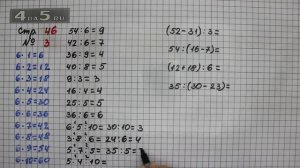 4ДЗ.COM
стр 46
№ 3
6·1=6
6·2=12
6·3=18
6·4=24
6·5=30
6·6=36
6·7=42
6·8=48
6·9=54
6·10=60
54:6=9
42:6=7
36:9=4
40:8=5
9:3=3
16:4=4
25:5=5
36:6=6
6·5:10=30:10=3
3·8:6=24:6=4
5·7:5=35:5=
5·4:10=
(52-31):3=
54:(16-7)=
(12+18):6=
35:(30-23)=